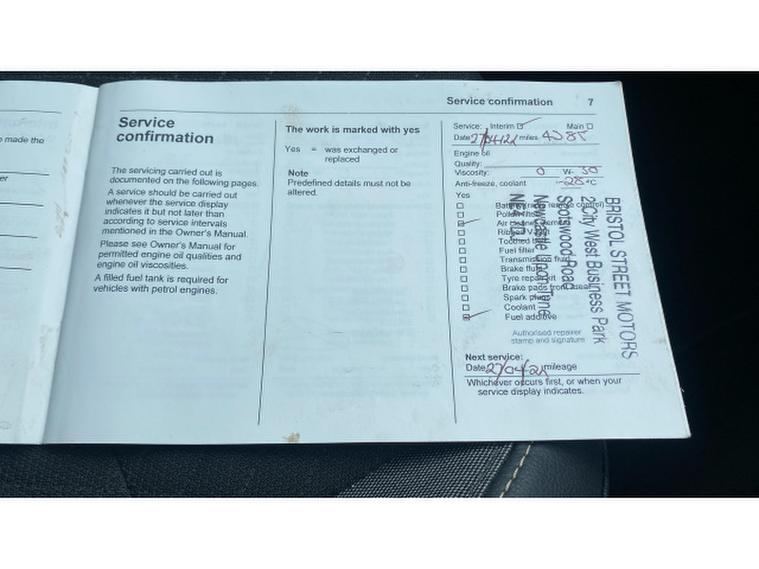 made the
er
Service
confirmation
The servicing carried out is
documented on the following pages.
A service should be carried out
whenever the service display
indicates it but not later than
according to service intervals
mentioned in the Owner's Manual.
Please see Owner's Manual for
permitted engine oil qualities and
engine oil viscosities.
A filled fuel tank is required for
vehicles with petrol engines.
The work is marked with yes
Yes = was exchanged or
replaced
Note
Predefined details must not be
altered.
Service confirmation 7
Service: Interim Main
Date miles
Engine oil
Quality:
Viscosity: 0 W- 30
Anti-freeze, coolant -28 °C
Yes
Pollen filter
Air cleaner
Fuel filter
Transmission fluid
Brake fluid
Tyre repair kit
Brake pads front
Spark plugs
Coolant
Fuel additive
BRISTOL STREET MOTORS
City West Business Park
Scotswood Road
Newcastle upon Tyne
Authorised repairer
stamp and signature
Next service:
Date mileage
Whichever occurs first, or when your
service display indicates.